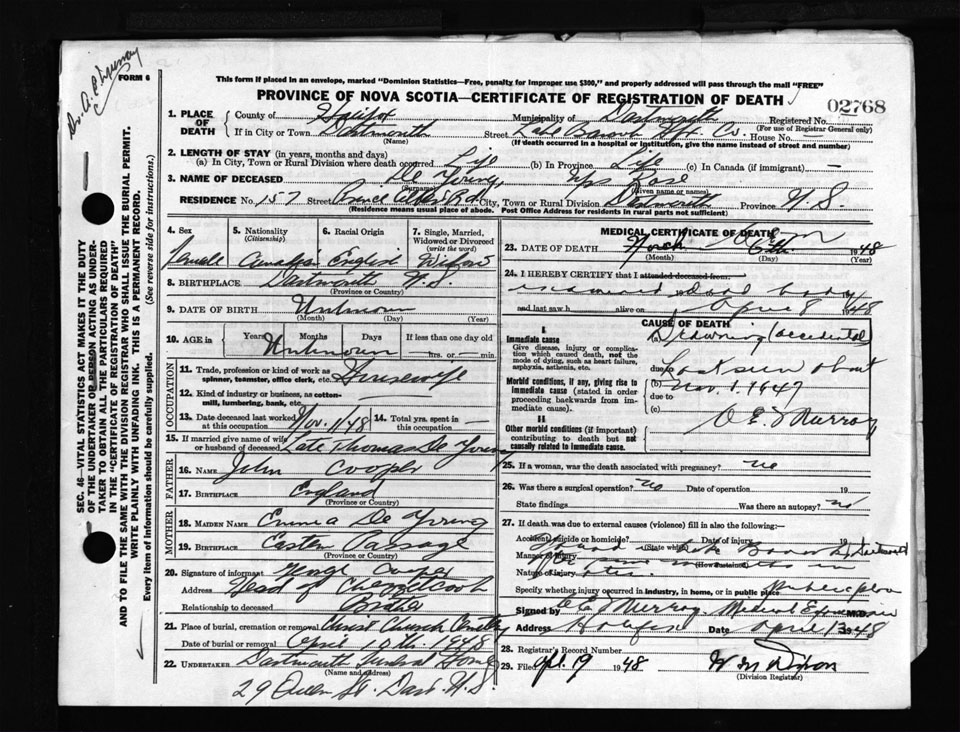 Dr. A. C. Murray
FORM 6
This form if placed in an envelope, marked "Dominion Statistics—Free, penalty for improper use $300," and properly addressed will pass through the mail "FREE"
PROVINCE OF NOVA SCOTIA—CERTIFICATE OF REGISTRATION OF DEATH
02768
1. PLACE OF DEATH
County of Halifax Municipality of Dartmouth Registered No.
(For use of Registrar General only)
If in City or Town Dartmouth Street Lake Banook Hx. Co. House No. —
(Name) (If death occurred in a hospital or institution, give the name instead of street and number)
2. LENGTH OF STAY (in years, months and days)
(a) In City, Town or Rural Division where death occurred Life (b) In Province Life (c) In Canada (if immigrant) —
3. NAME OF DECEASED De Young, Mrs Rose
(Surname) (Given name or names)
RESIDENCE No. 157 Street Prince Albert Rd. City, Town or Rural Division Dartmouth Province N. S.
(Residence means usual place of abode. Post Office Address for residents in rural parts not sufficient)
4. Sex
Female
5. Nationality
(Citizenship)
Canadian
6. Racial Origin
English
7. Single, Married, Widowed or Divorced
(write the word)
Widow
8. BIRTHPLACE Dartmouth N. S.
(Province or Country)
9. DATE OF BIRTH Unknown
(Month) (Day) (Year)
10. AGE in Years Months Days If less than one day old
Unknown — hrs. or — min.
OCCUPATION
11. Trade, profession or kind of work as spinner, teamster, office clerk, etc. Housewife
12. Kind of industry or business, as cotton-mill, lumbering, bank, etc. —
13. Date deceased last worked at this occupation Nov. 1/48
14. Total yrs. spent in this occupation —
15. If married give name of wife or husband of deceased Late Thomas De Young
FATHER
16. NAME John Cooper
17. BIRTHPLACE England
(Province or Country)
MOTHER
18. MAIDEN NAME Emma De Young
19. BIRTHPLACE Eastern Passage
(Province or Country)
20. Signature of informant George Cooper
Address Head of Chezzetcook
Relationship to deceased Brother
21. Place of burial, cremation or removal Christ Church Cemetery
Date of burial or removal April th. 1948
22. UNDERTAKER Dartmouth Funeral Home
(Name and address)
29 Queen St. Dart. N. S.
MEDICAL CERTIFICATE OF DEATH
23. DATE OF DEATH 6th 1948
(Month) (Day) (Year)
24. I HEREBY CERTIFY that I attended deceased from:
examined dead body
and last saw h alive on April 8 1948
CAUSE OF DEATH
I.
Immediate cause
Give disease, injury or complication which caused death, not the mode of dying, such as heart failure, asphyxia, asthenia, etc.
(a) Drowning (accidental)
Morbid conditions, if any, giving rise to immediate cause (stated in order proceeding backwards from immediate cause).
due to
(b)
due to
(c)
Last seen about
Nov. 1. 1947
II
Other morbid conditions (if important) contributing to death but not causally related to immediate cause.
Murray
25. If a woman, was the death associated with pregnancy? no
26. Was there a surgical operation? no Date of operation 19
State findings Was there an autopsy? no
27. If death was due to external causes (violence) fill in also the following:
Accident, suicide or homicide? Date of injury 19
(State which)
Found in Lake Banook, Dartmouth
Manner of injury
(How sustained)
Nature of injury
Specify whether injury occurred in industry, in home, or in public place Public place
Signed by Murray, Medical Examiner M.D.
Address Halifax Date April 13 1948
28. Registrar's Record Number
29. Filed Apl. 19 1948 W M Dixon
(Division Registrar)
SEC. 46—VITAL STATISTICS ACT MAKES IT THE DUTY
OF THE UNDERTAKER OR PERSON ACTING AS UNDER-
TAKER TO OBTAIN ALL THE PARTICULARS REQUIRED
IN THE "CERTIFICATE OF REGISTRATION OF DEATH"
AND TO FILE THE SAME WITH THE DIVISION REGISTRAR WHO SHALL ISSUE THE BURIAL PERMIT.
WRITE PLAINLY WITH UNFADING INK. THIS IS A PERMANENT RECORD.
Every item of information should be carefully supplied. (See reverse side for instructions.)